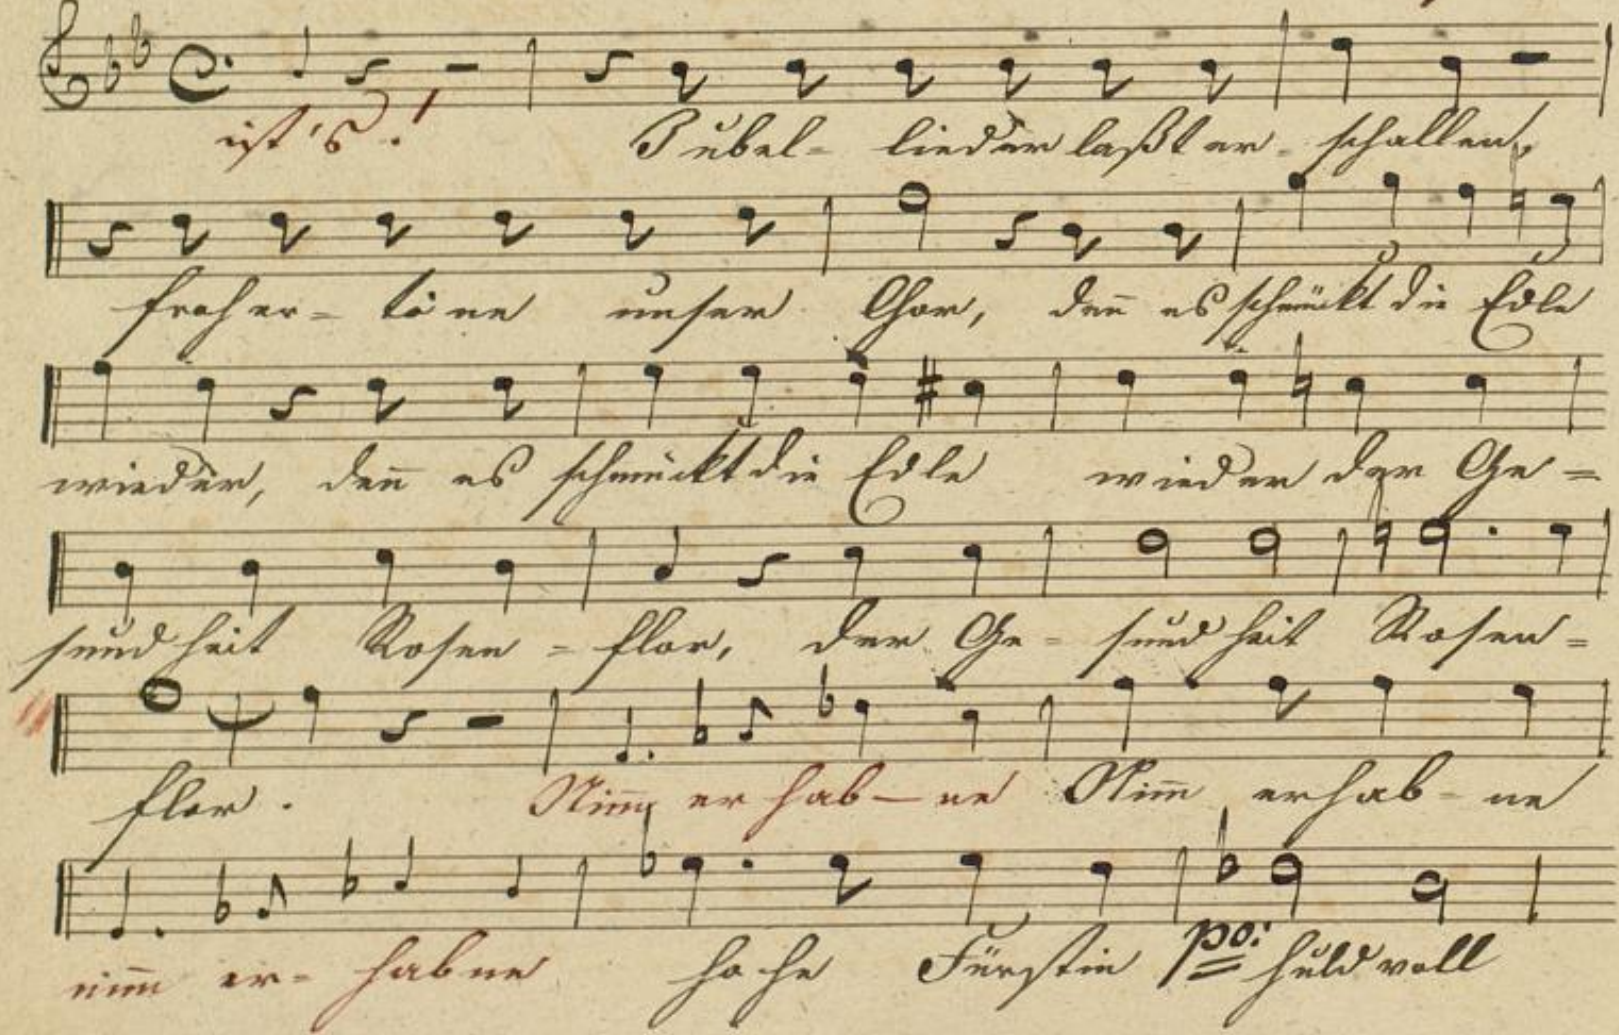 ist's!  Jubel- lieder laßt er- schallen,
froh er- töne unser Chor, deñ es schmückt die Edle
wieder, deñ es schmückt die Edle wieder der Ge-
sundheit Rosen- flor, der Ge- sundheit Rosen-
flor. Nim̃ er hab- ne Nim̃ erhab- ne
nim̃ er- habne hohe Fürstin po: huldvoll